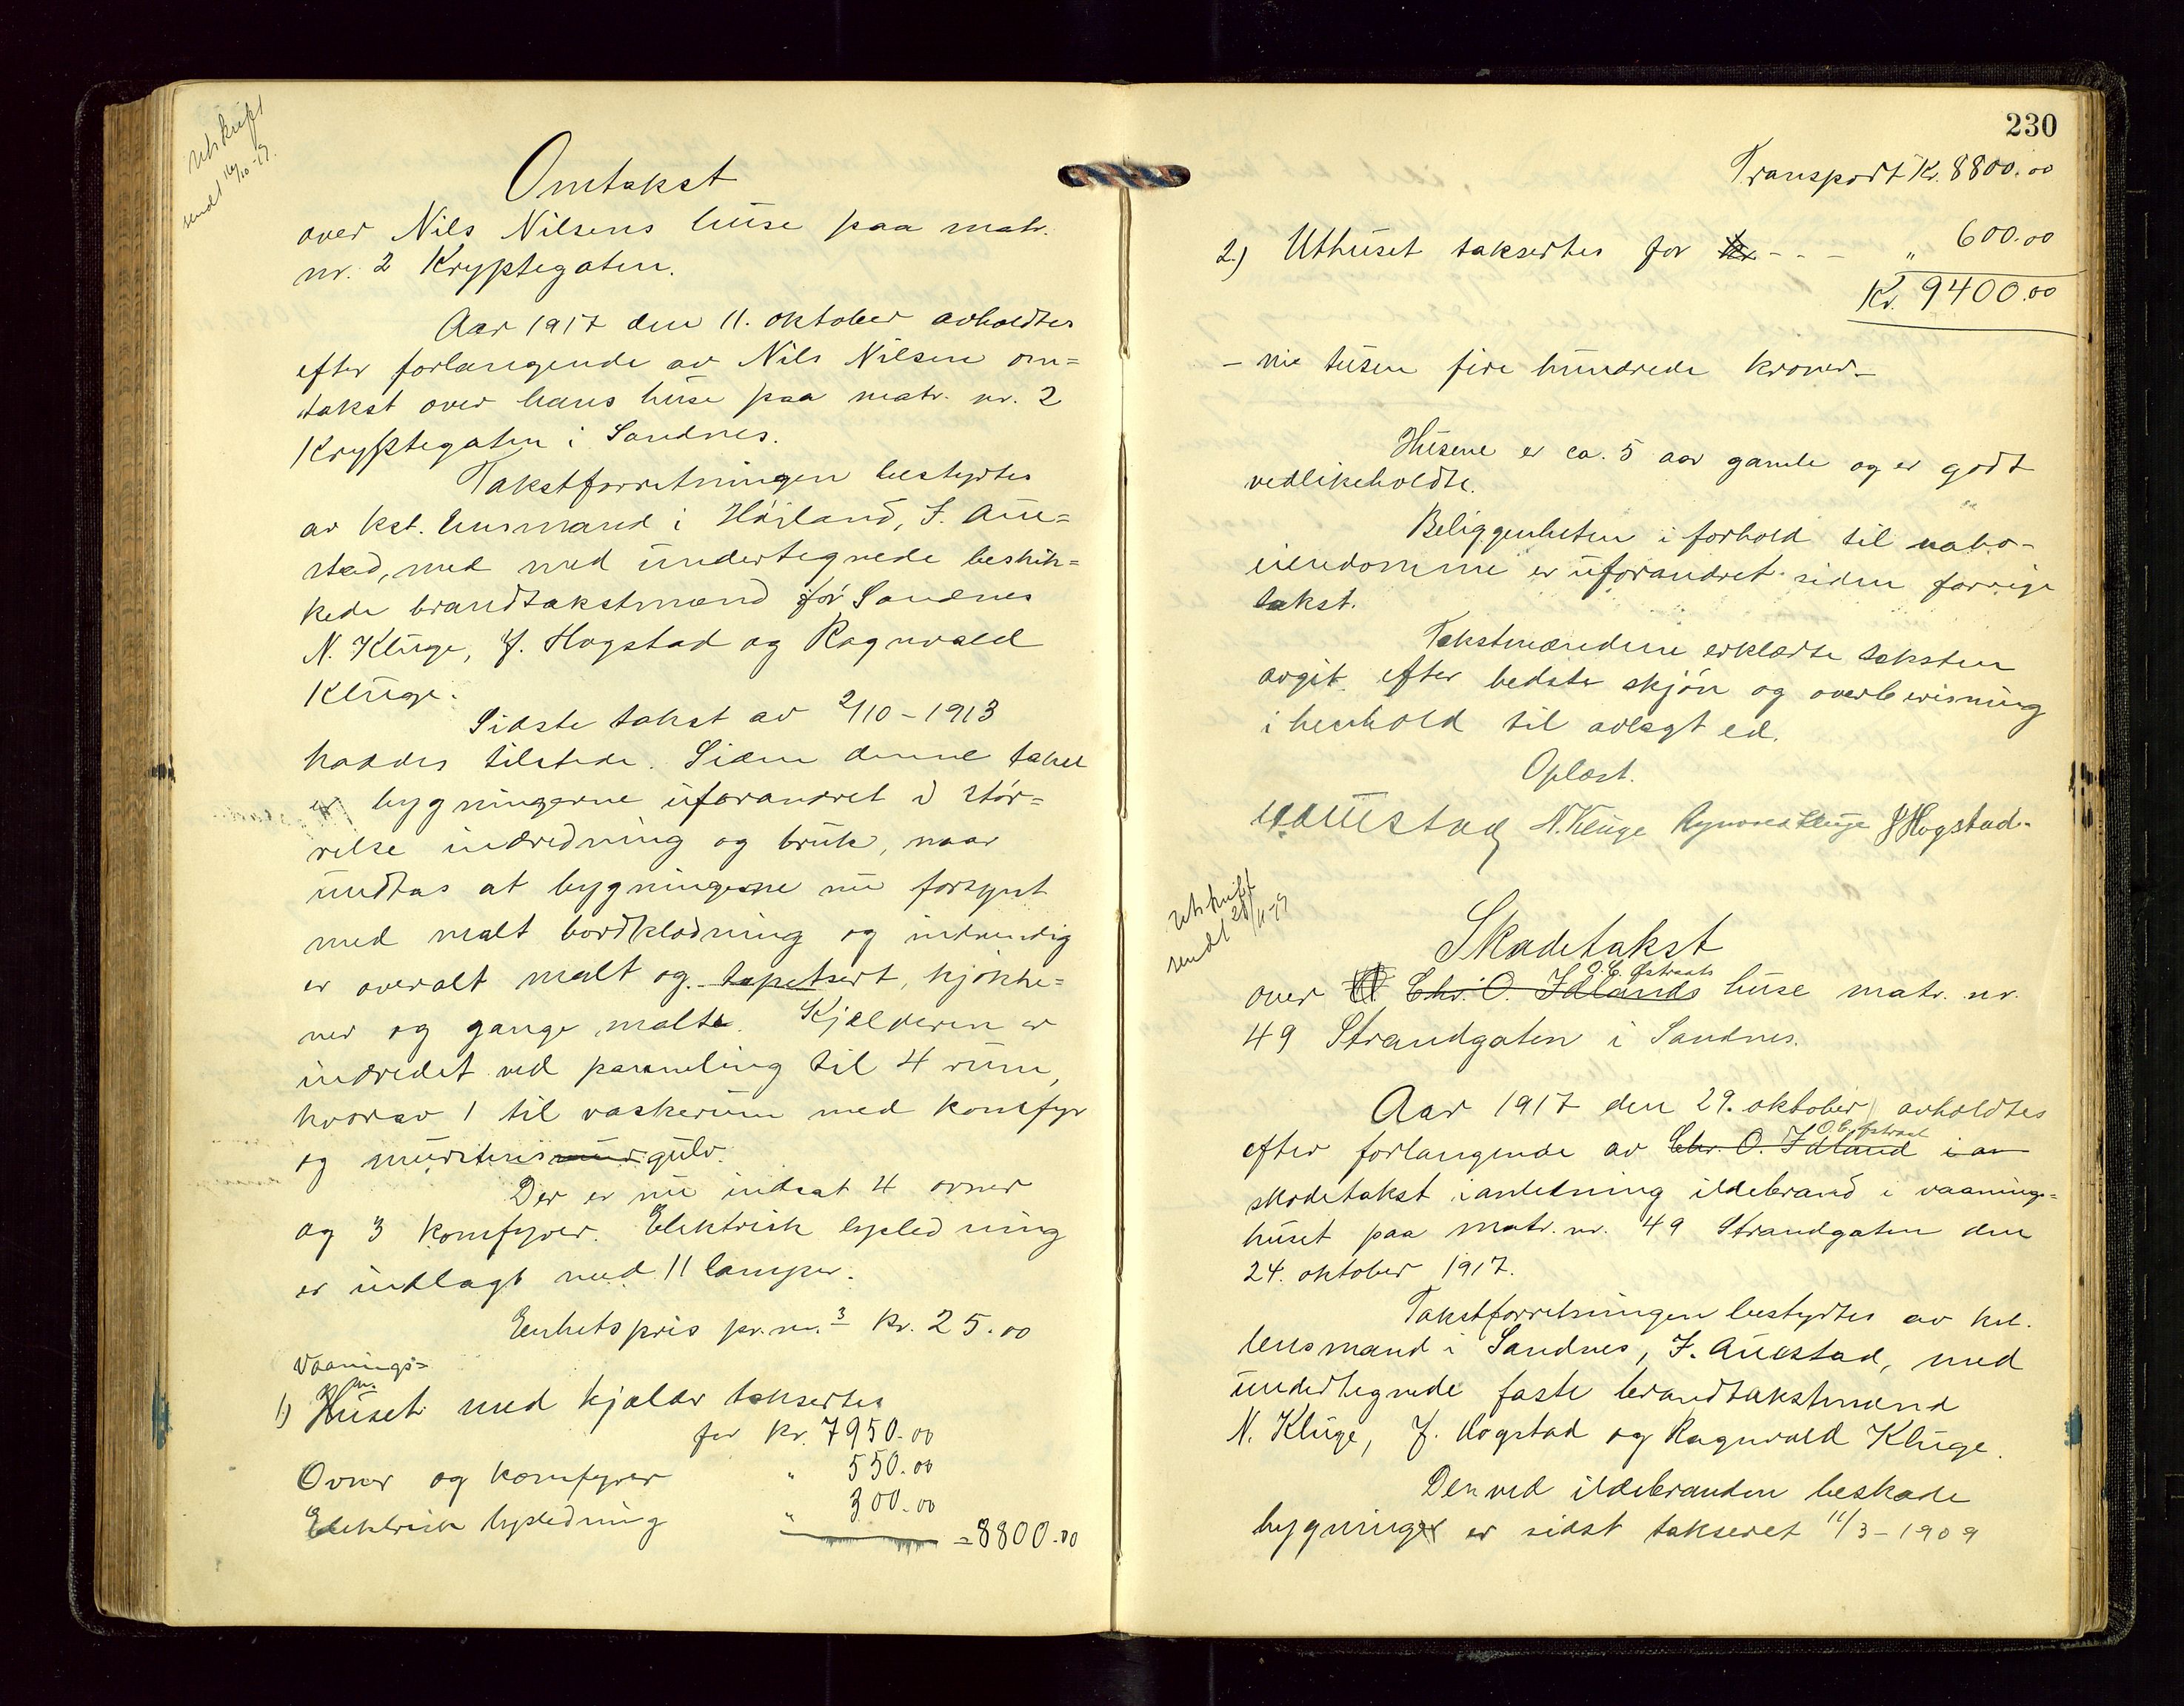 Utskrift
sendt 16/10-17.
Omtakst
over Nils Nilsens huse paa matr.
nr. 2 Kryptegaten.
Aar 1917 den 11. oktober avholdtes
efter forlangende av Nils Nilsen om=
takst over hans huse paa matr. nr. 2
Kryptegaten i Sandnes.
Takstforretningen bestyrtes
av kst. lensmand i Høiland, J. Aue=
stad, med med undertegnede beskik=
kede brandtakstmænd for Sandnes
N. Kluge, J. Hogstad og Ragnvald
Kluge.
Sidste takst av 2/10-1913
haddes tilstede. Siden denne takst
er bygningerne uforandret i stør=
relse indredning og bruk, naar
undtas at bygningerne nu forsynt
med malt bordklædning og indvendig
er overalt malt og tapetsert, kjøkke=
ner og gange malte. Kjelderen er
indredet ved paneling til 4 rum,
hvorav 1 til vaskerum med komfyr
og murstens gulv.
Der er nu indsat 4 ovner
og 3 komfyrer. Elektrisk lysledning
er indlagt med 11 lamper.
Enhetspris pr. m.3 kr. 25.00
Vaanings=
1) Huset med kjælder taksertes
for kr. 7950.00
Ovner og komfyrer " 550.00
Elektrisk lysledning " 300.00
= 8800.00
230
Transport Kr. 8800.00
2.) Uthuset taksertes for kr - - - " 600.00
Kr. 9400.00
- ni tusen fire hundrede kroner -
Husene er ca. 5 aar gamle og er godt
vedlikeholdte.
Beliggenheten i forhold til nabo-
eiendomme er uforandret siden forrige
takst.
Takstmændene erklærte taksten
avgit efter bedste skjøn og overbevisning
i henhold til avlagt ed.
Oplæst.
J. Auestad N. Kluge Ragnvald Kluge J Hogstad.
Utskrift
sendt 28/11-17
Skadetakst
O. E. Østraats
over Chr. O. Idlands huse matr. nr.
49 Strandgaten i Sandnes.
Aar 1917 den 29. oktober avholdtes
O. E. Østraat
efter forlangende av Chr. O. Idland i an
skadetakst i anledning ildebrand i vaanings=
huset paa matr. nr. 49 Strandgaten den
24. oktober 1917.
Takstforretningen bestyrtes av kst.
lensmand i Sandnes, J. Auestad, med
undertegnede faste brandtakstmænd
N. Kluge, J. Hogstad og Ragnvald Kluge.
Den ved ildebranden beskade
bygninger er sidst takseret 11/3-1909